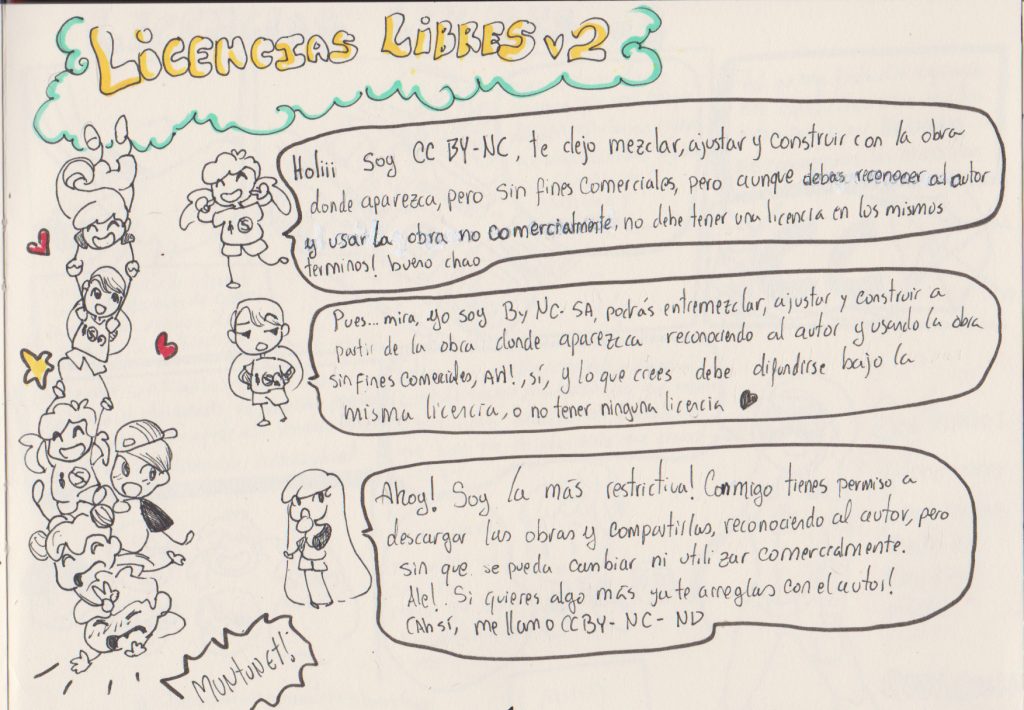 LICENCIAS LIBRES v2
Holiii Soy CC BY-NC, te dejo mezclar, ajustar y construir con la obra
donde aparezca, pero sin fines comerciales, pero aunque debas reconocer al autor
y usar la obra no comercialmente, no debe tener una licencia en los mismos
terminos! bueno chao
Pues... mira, yo soy By NC-SA, podrás entremezclar, ajustar y construir a
partir de la obra donde aparezca reconociendo al autor y usando la obra
sin fines comerciales, AH!, sí, y lo que crees debe difundirse bajo la
misma licencia, o no tener ninguna licencia
Ahoy! Soy la más restrictiva! Conmigo tienes permiso a
descargar las obras y compartirlas, reconociendo al autor, pero
sin que se pueda cambiar ni utilizar comercialmente.
Ale! Si quieres algo más ya te arreglas con el autor!
(Ah sí, me llamo CCBY-NC-ND
MUNTUNET!